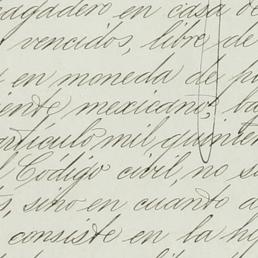 pagadero en casa de
vencidos, libre de
y en moneda de p
iente mexicano, ba
artículo mil quinien
l Código civil, no s
s, sino en cuanto a
consiste en la hip